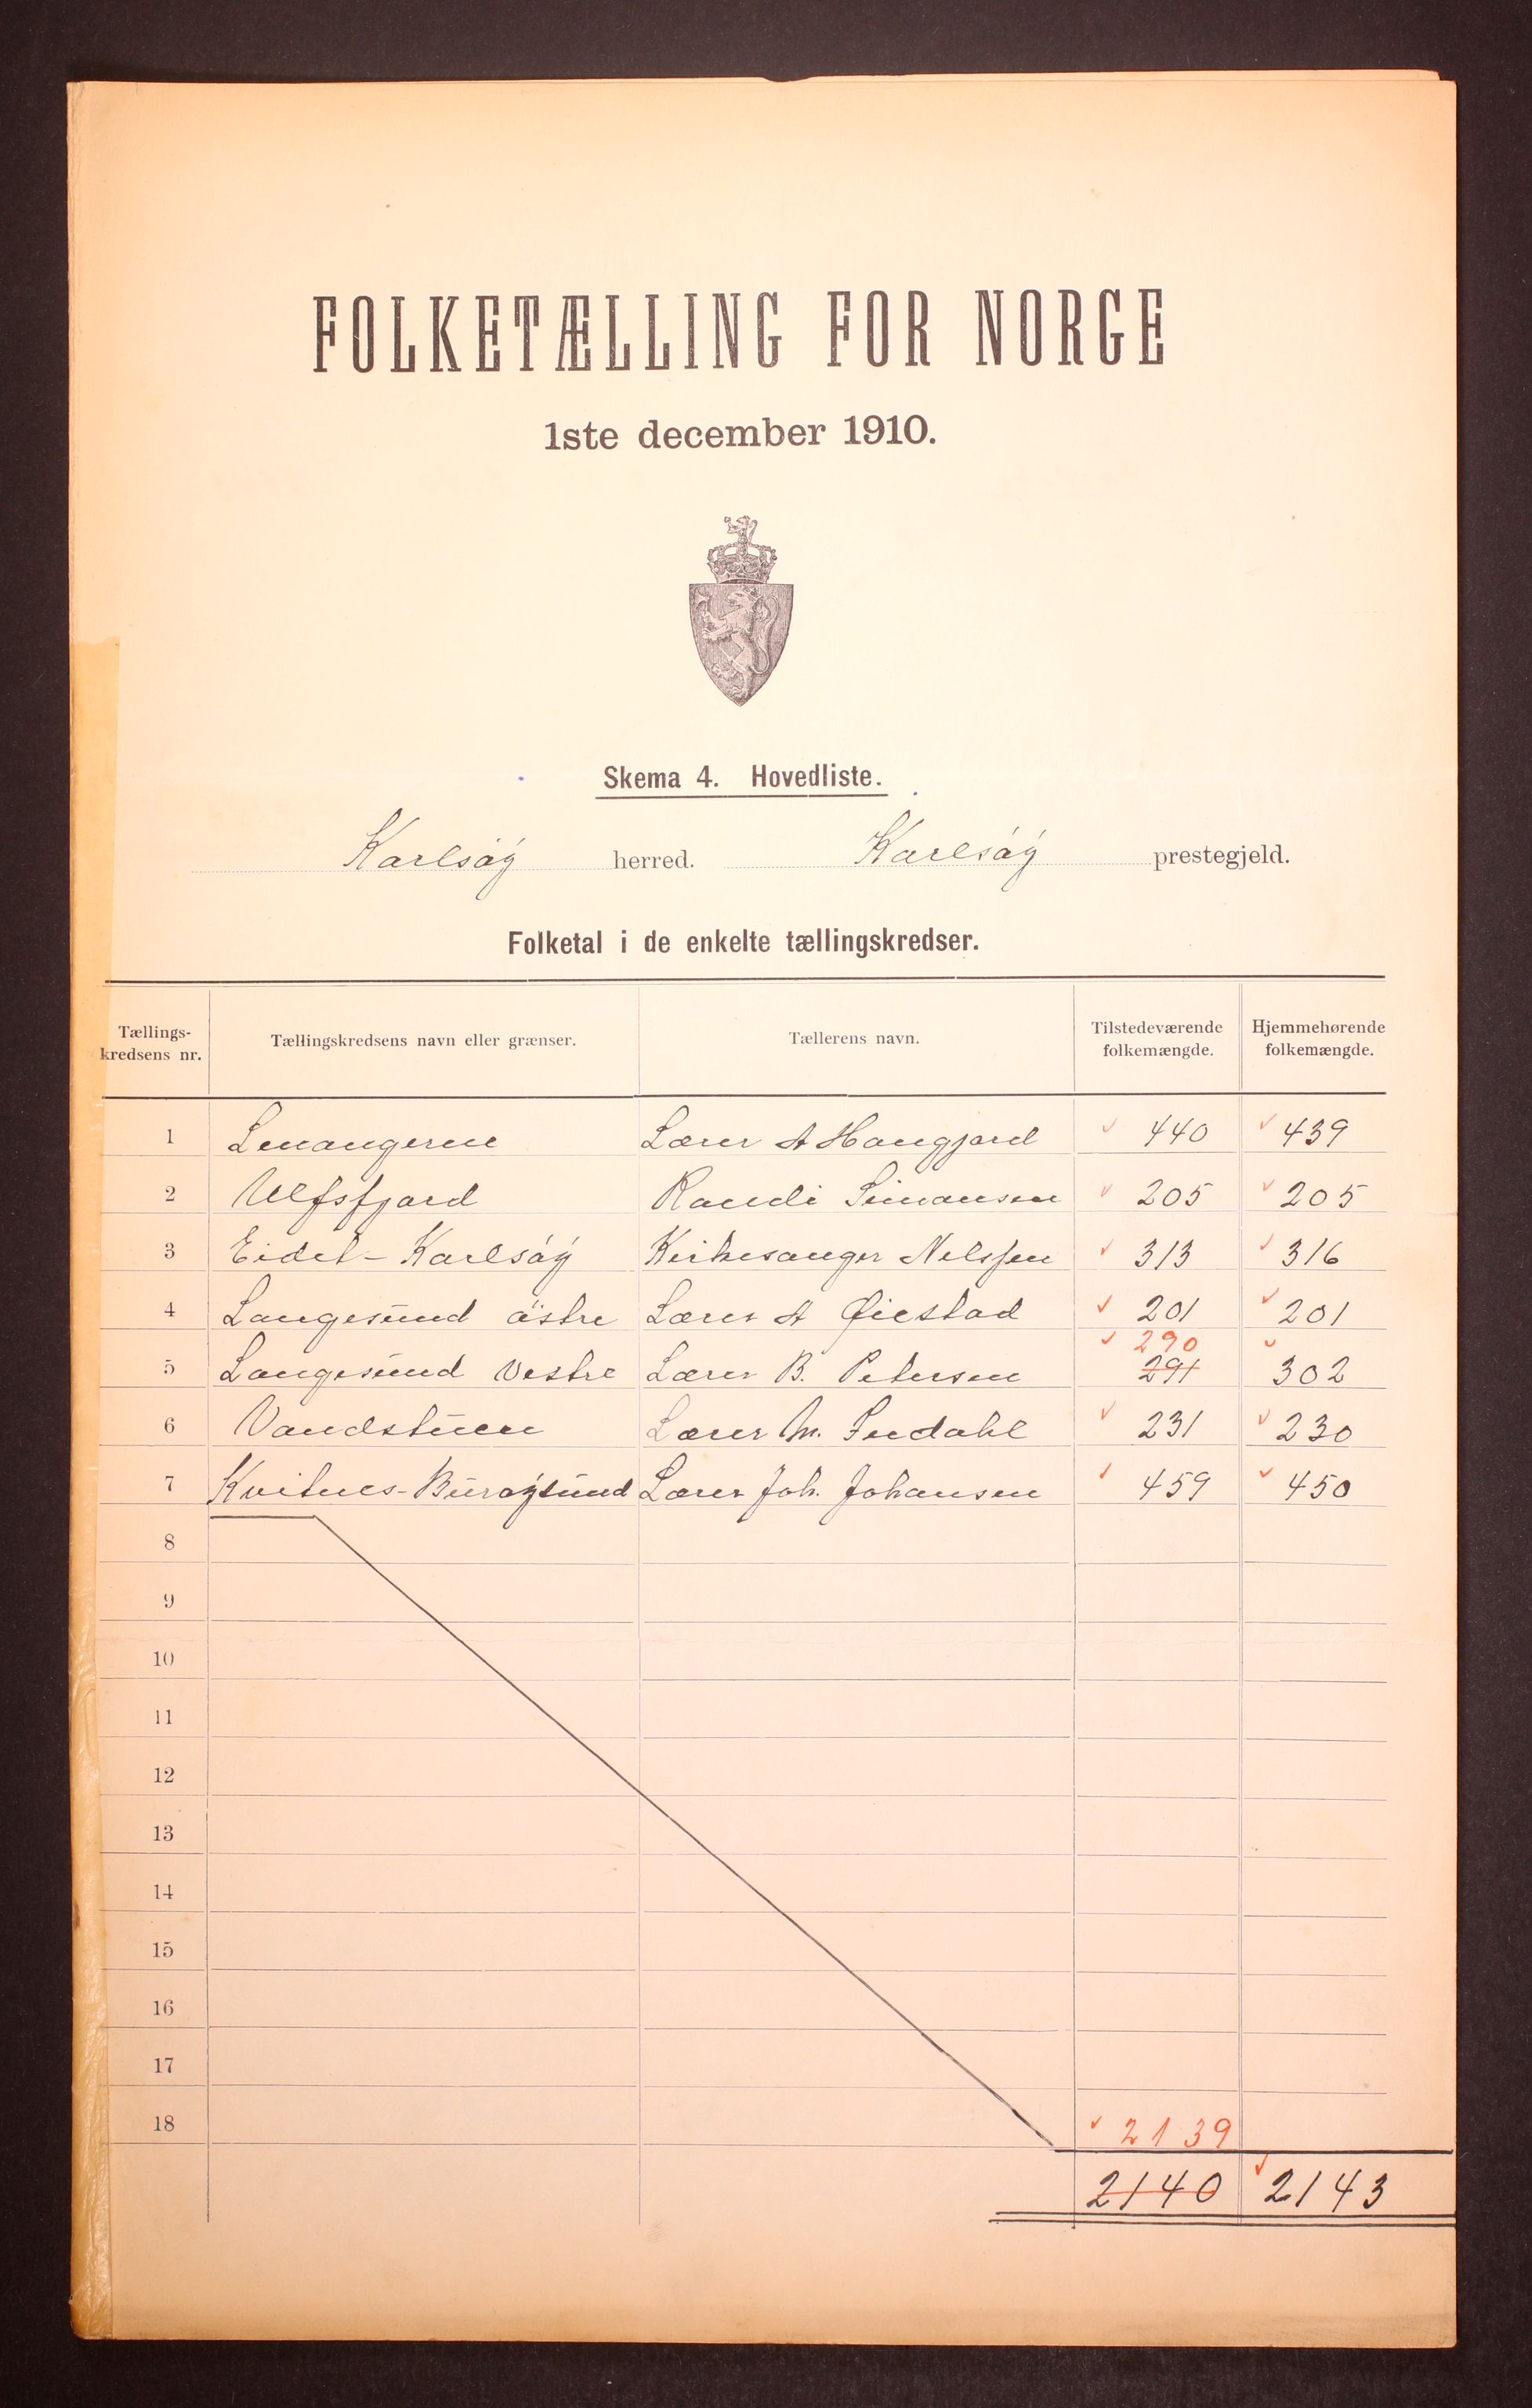 FOLKETÆLLING FOR NORGE
1ste december 1910.
Skema 4. Hovedliste.
Karlsøy herred. Karlsøy prestegjeld.
Folketal i de enkelte tællingskredser.
Tællings-
kredsens nr.
Tællingskredsens navn eller grænser.
Tællerens navn.
Tilstedeværende
folkemængde.
Hjemmehørende
folkemængde.
1 Lenangerne Lærer A Haugjord 440 439
2 Ulfsfjord Randi Simonsen 205 205
3 Eidet - Karlsøy Kirkesanger Nilssen 313 316
4 Langesund østre Lærer A Øiestad 201 201
290
5 Langesund Vestre Lærer B. Petersen 291 302
6 Vandstuen Lærer M. 231 230
7 Kvitnes - Burøysund Lærer Joh. Johansen 459 450
8
9
10
11
12
13
14
15
16
17
18 2139
2140 2143